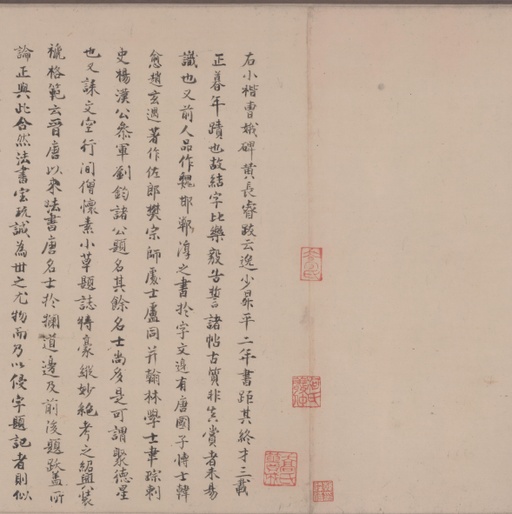 右小楷曹娥碑黄長睿跋云逸少昇平二年書距其終才三載
正暮年蹟也故結字比樂毅告誓諸帖古質非真賞者未易
識也又前人品作魏邯鄲淳之書於字文邊有唐國子博士韓
愈趙玄遇著作佐郎樊宗師處士盧同并翰林學士畢踪刺
史楊漢公叅軍劉鈞諸公題名其餘名士尚多是可謂聚德星
也又諌文空行間僧懷素小草題誌特豪縱妙絶考之紹興裝
褫格範云晋唐以來法書唐名士於攔道邊及前後題跋蓋所
論正與此合然法書宝玩誠為世之尤物而乃以侵字題記者則似